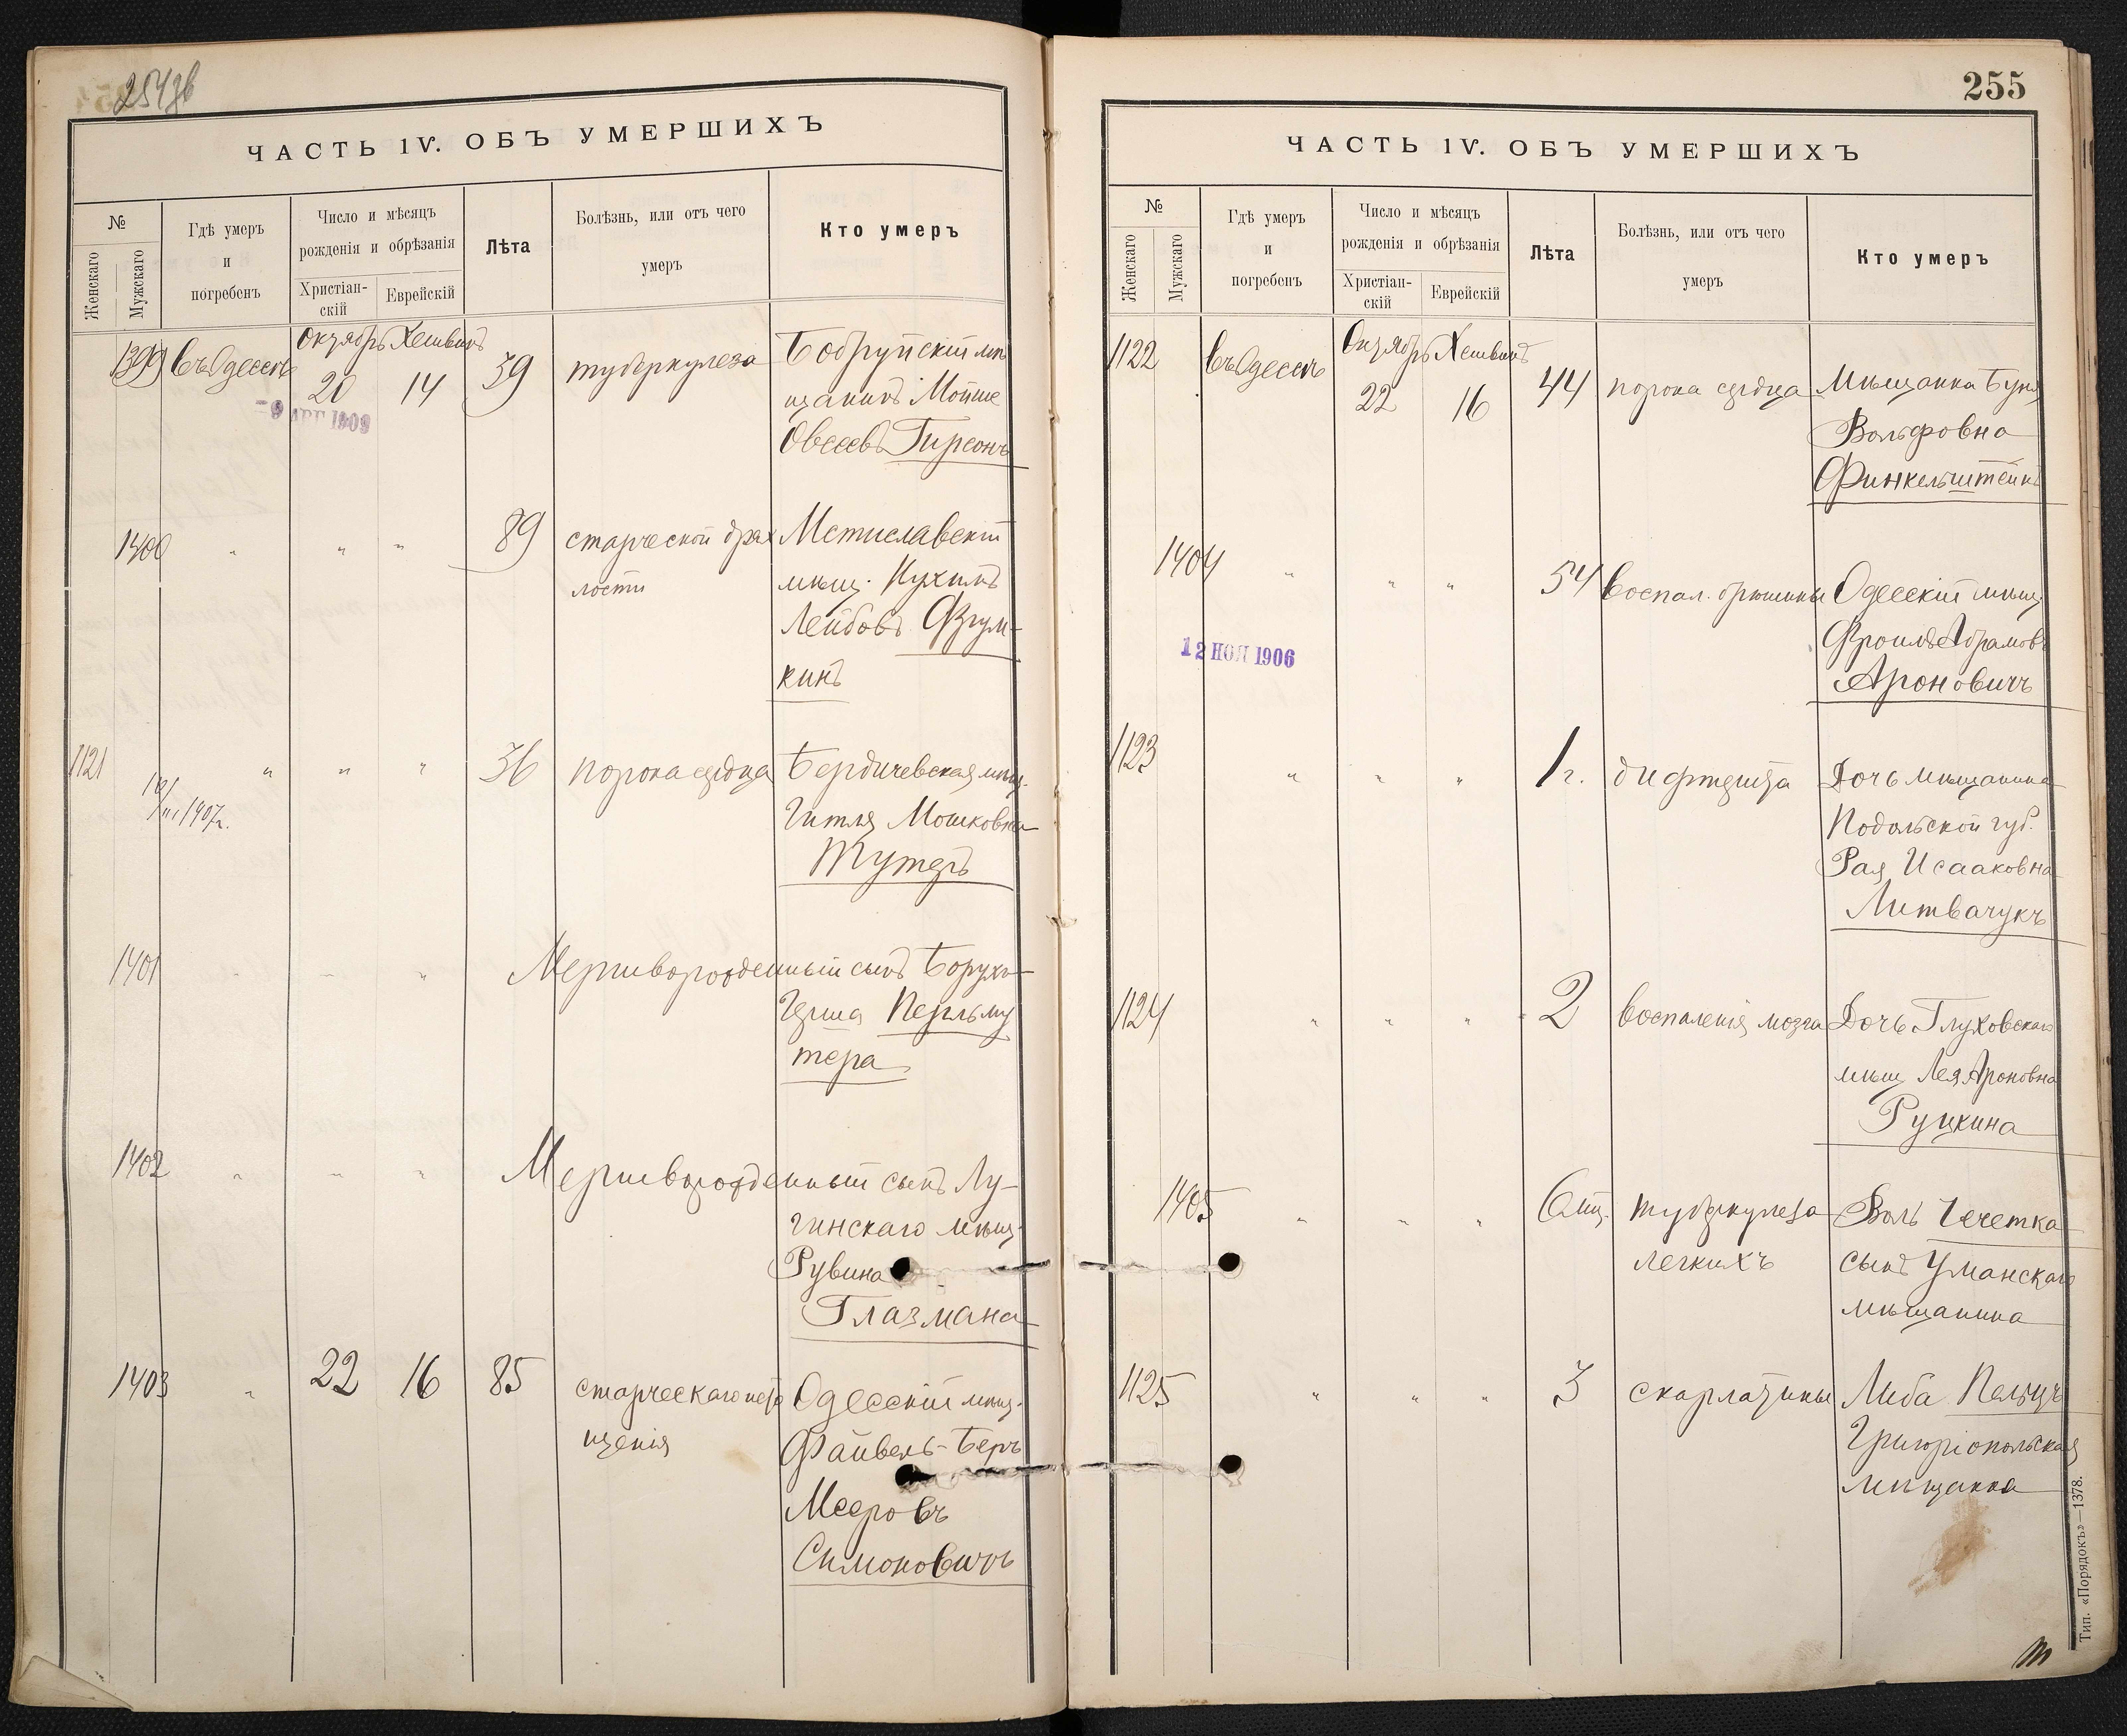 254 об
ЧАСТЬ IV. ОБЪ УМЕРШИХЪ
№
Женскаго
Мужскаго
Гдѣ умеръ
и
погребенъ
Число и мѣсяцъ
рожденія и обрѣзанія
Христіан-
скій
Еврейскій
Лѣта
Болѣзнь, или отъ чего
умеръ
Кто умеръ
Октябрь Хешвинъ
1399 въ Одессѣ 20 14 39 туберкулеза Бобруйскій мѣ
щанинъ Мойше
Овсеевъ Гирсонъ
-9 АВГ 1909
1400 " " " 89 старческой дрях Мстиславскій
лости мѣщ. Нухимъ
Лейбовъ Фрум-
кинъ
1121 " " " 36 порока сердца Бердичевская мѣщ.
10/III 1907г. Гитля Мошковна
Тутеръ
1401 " " " Мертворожденный сынъ Боруха-
Герша Перльму
тера
1402 " " " Мертворожденный сынъ Лу-
гинскаго мѣщ.
Рувина
Глазмана
1403 " 22 16 85 старческаго исто Одесскій мѣщ.
щенія Файвель-Беръ
Мееровъ
Симоновичъ
255
ЧАСТЬ IV. ОБЪ УМЕРШИХЪ
№
Женскаго
Мужскаго
Гдѣ умеръ
и
погребенъ
Число и мѣсяцъ
рожденія и обрѣзанія
Христіан-
скій
Еврейскій
Лѣта
Болѣзнь, или отъ чего
умеръ
Кто умеръ
Октябрь Хешвинъ
1122 въ Одессѣ 22 16 44 порока сердца Мѣщанка Буня
Вольфовна
Финкельштейнъ
1404 " " " 54 воспал. брюшины Одесскій мѣщ.
Фроимъ Абрамовъ
Ароновичъ
12 НОЯ 1906
1123 " " " 1 г. дифтерита Дочь мѣщанина
Подольской губ.
Рая Исааковна
Литвачукъ
1124 " " " 2 воспаленія мозга Дочь Глуховскаго
мѣщ Лея Ароновна
Руцкина
1405 " " " 6 мц. туберкулеза Воль Чечетка
легкихъ сынъ Уманскаго
мѣщанина
1125 " " " 3 скарлатины Либа Пельцъ
Григоріопольская
мѣщанка
Тип. «Порядокъ»—1378.